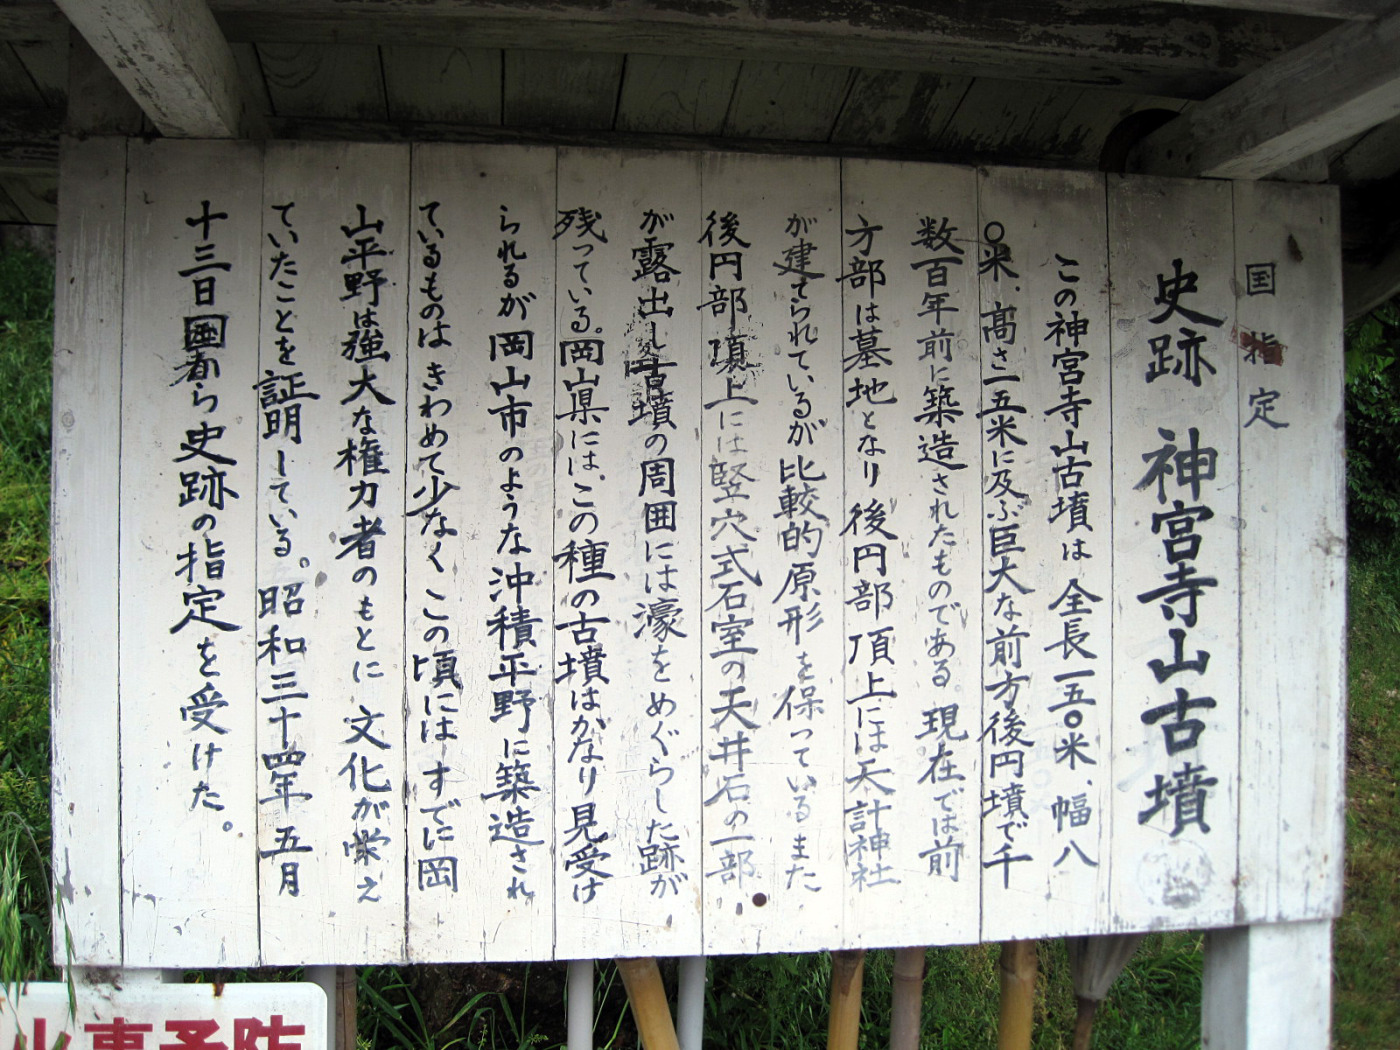 国指定
史跡 神宮寺山古墳
この神宮寺山古墳は全長一五〇米、幅八
〇米、高さ一五米に及ぶ巨大な前方後円墳で千
数百年前に築造されたものである。現在では前
方部は墓地となり後円部頂上には天計神社
が建てられているが比較的原形を保っているまた
後円部頂上には竪穴式石室の天井石の一部
が露出し古墳の周囲には濠をめぐらした跡が
残っている。岡山県には、この種の古墳はかなり見受け
られるが岡山市のような沖積平野に築造され
ているものはきわめて少なくこの頃にはすでに岡
山平野は強大な権力者のもとに文化が栄え
ていたことを証明している。昭和三十四年五月
十三日国から史跡の指定を受けた。
火事予防